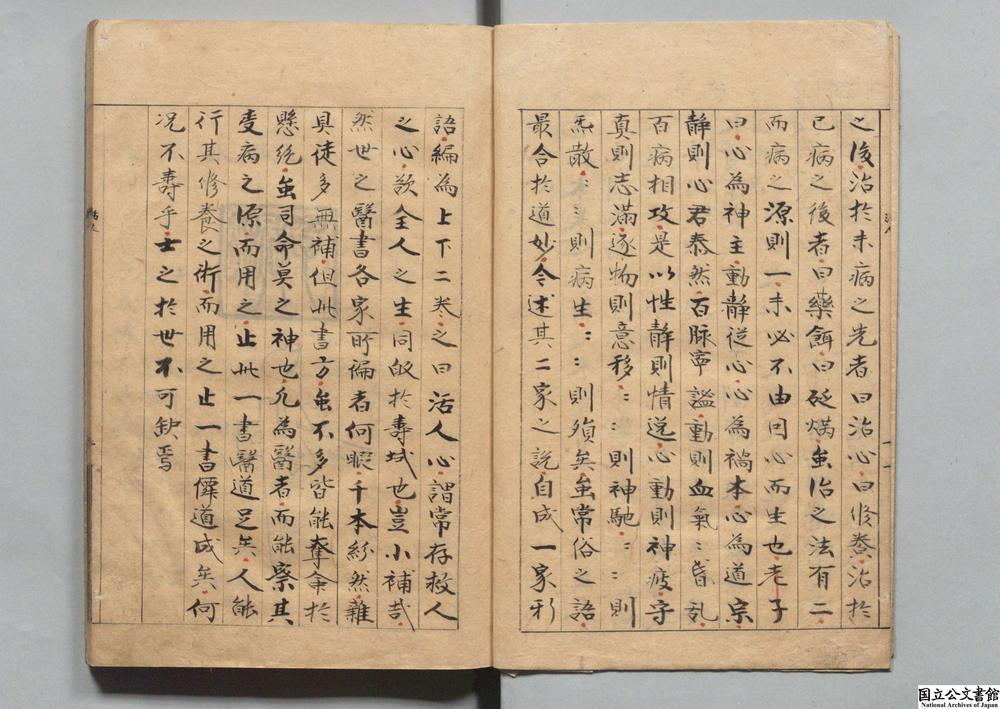 之後治於未病之先者曰治心曰修養治於
已病之後者曰藥餌曰砭焫虽治之法有二
而病之源則一未必不由因心而生也老子
曰心為神主動靜從心心為禍本心為道宗
靜則心君泰然百脉寧謐動則血氣〻昏乱
百病相攻是以性靜則情逸心動則神疲守
真則志滿逐物則意移〻〻則神馳〻〻則
炁散〻〻則病生〻〻則殞矣虽常俗之語
最合於道妙今述其二家之説自成一家新
語編為上下二卷之曰活人心謂常存救人
之心欲全人之生同皈於壽域也豈小補哉
然世之醫書各家所徧者何暇千本紛然雜
具徒多無補但此書方虽不多皆能奪命於
懸絶虽司命莫之神也凡為醫者而能察其
受病之源而用之止此一書醫道足矣人能
行其修養之術而用之止一書僊道成矣何
况不壽乎士之於世不可缺焉
国立公文書館
National Archives of Japan